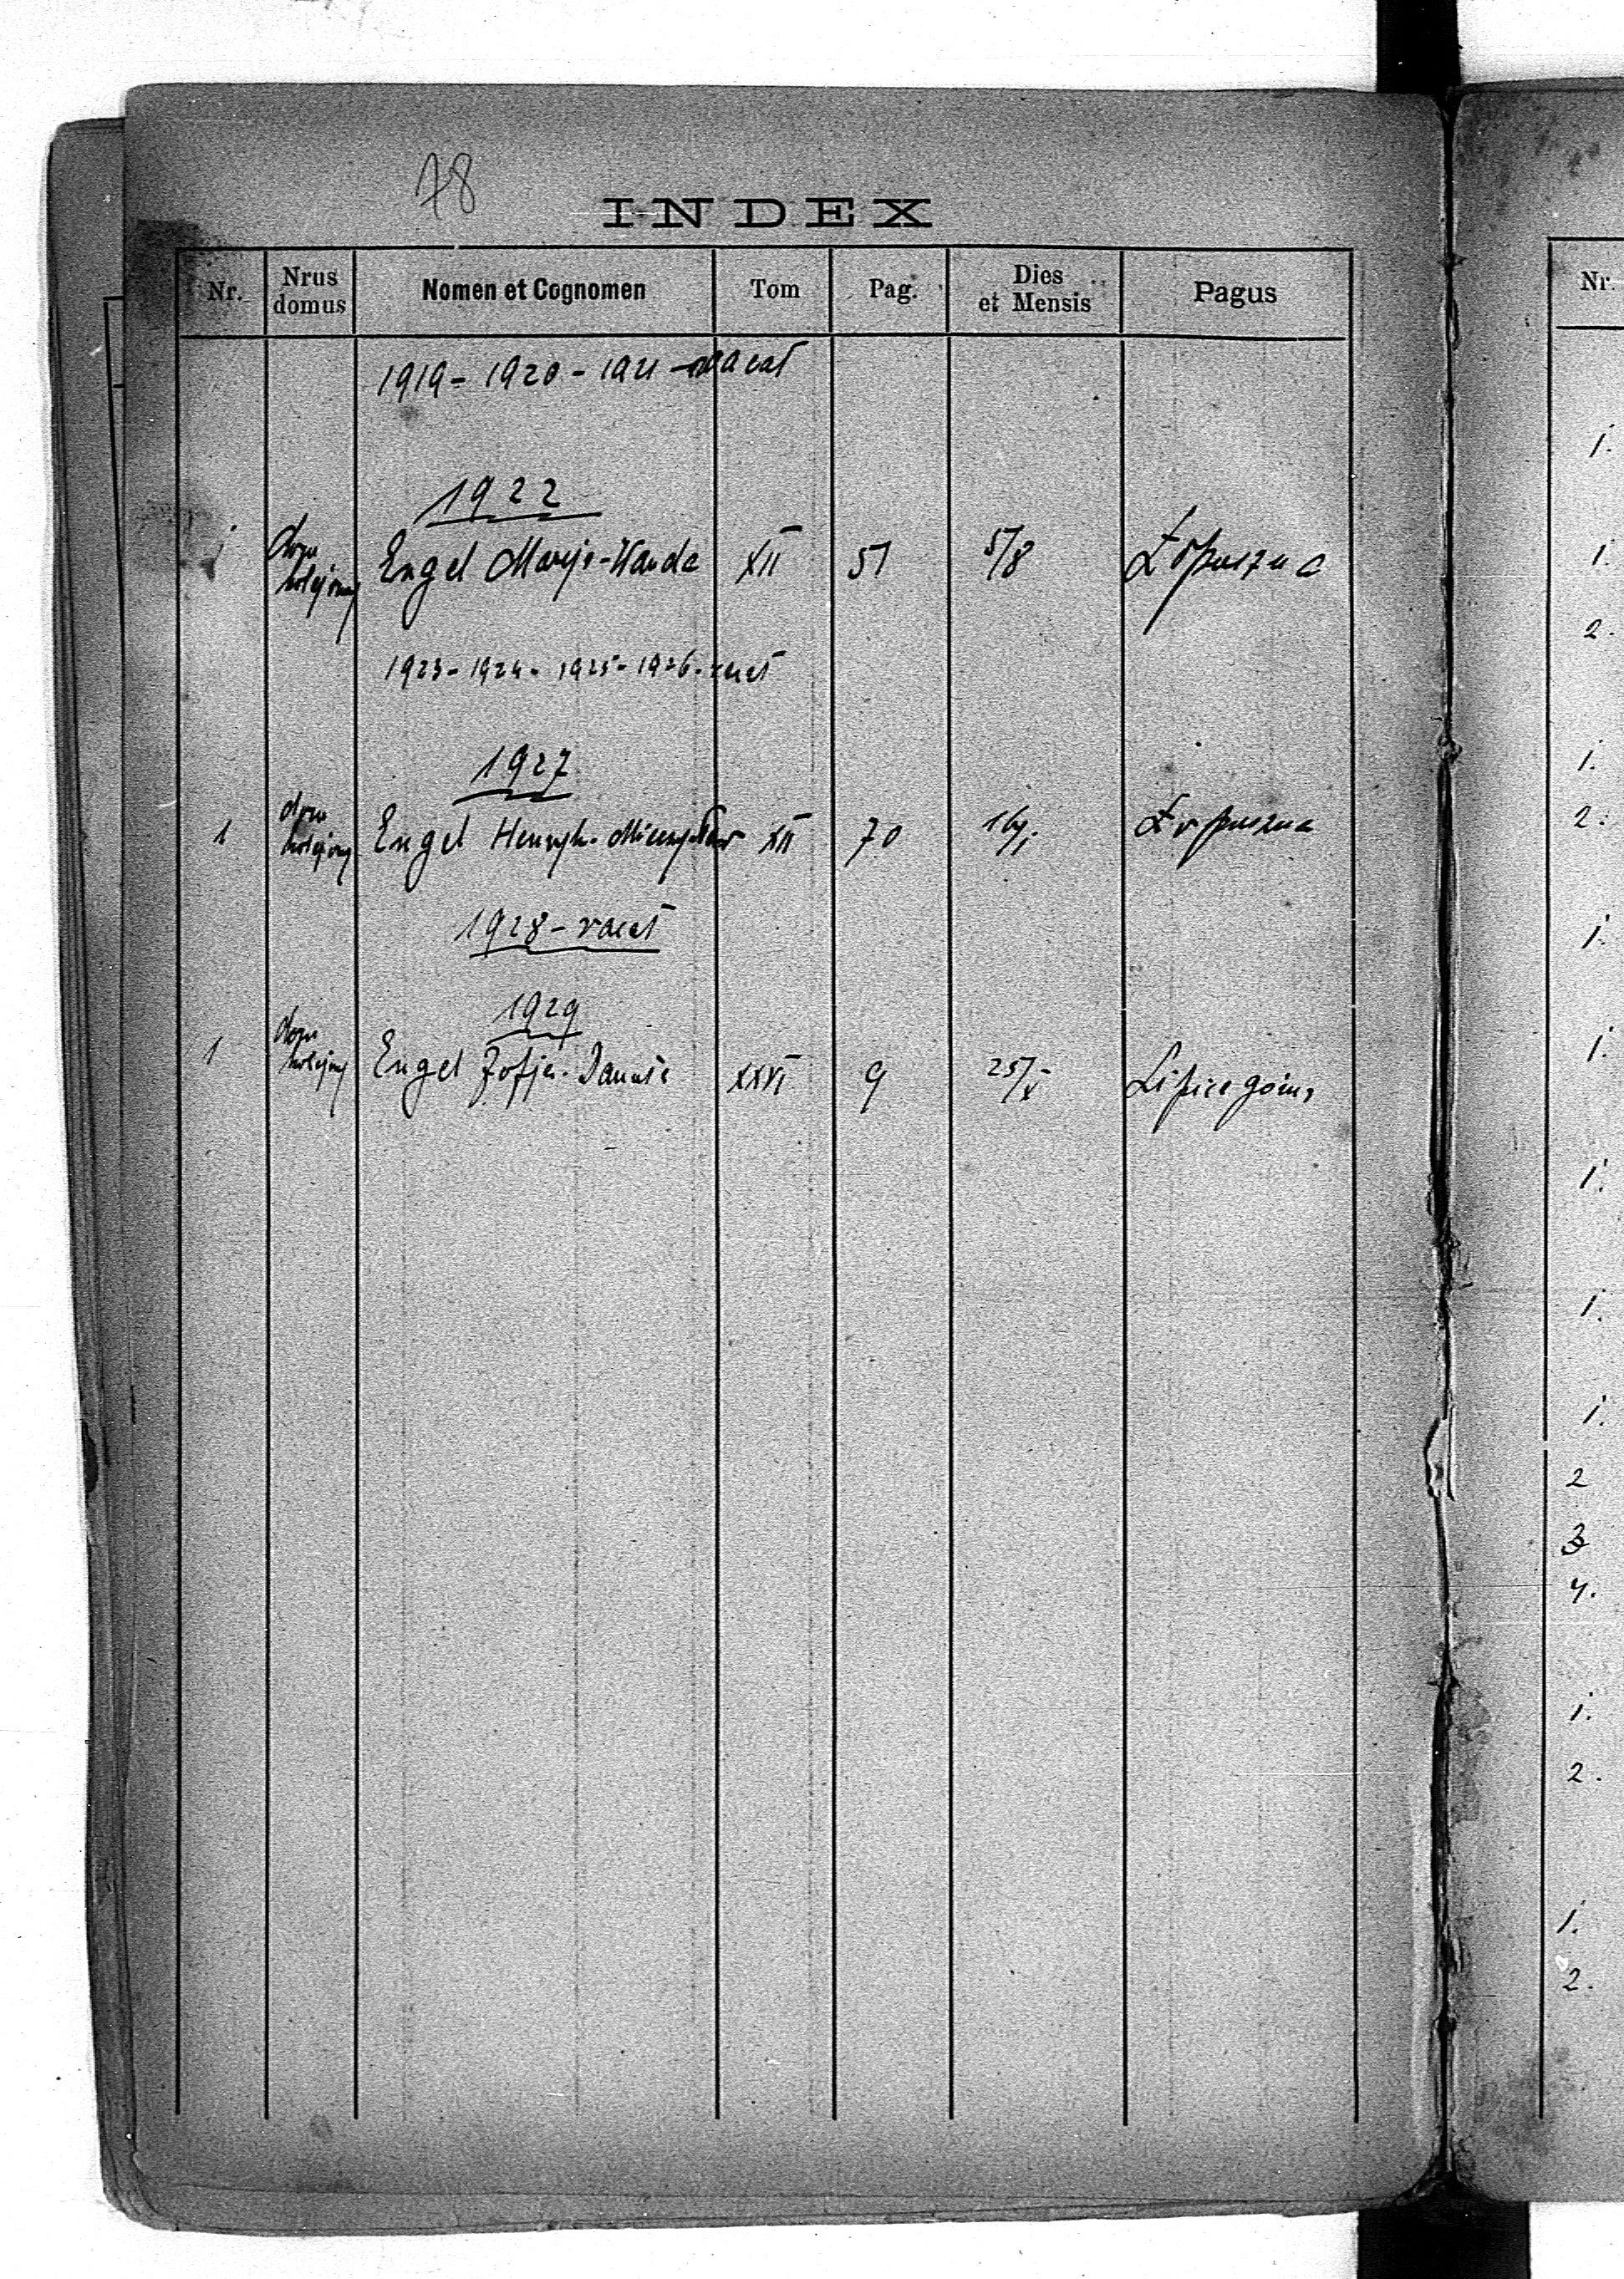 78
INDEX
Nr. Nrus domus Nomen et Cognomen Tom Pag. Dies et Mensis Pagus
1919 - 1920 - 1921 - vacat
1922
1 dom kolejowy Engel Marja-Wanda XII 51 5/8 Łopuszna
1923 - 1924 - 1925 - 1926 - vacat
1927
1 dom kolejowy Engel Henryk-Mieczysław XII 70 Łopuszna
1928 - vacat
1929
1 dom kolejowy Engel Zofja-Danuta XXVI 9 25/X Lipica górna
Nr.
1.
1.
2.
1.
2.
1.
1.
1.
1.
1.
2
3
4.
1.
2.
1.
2.